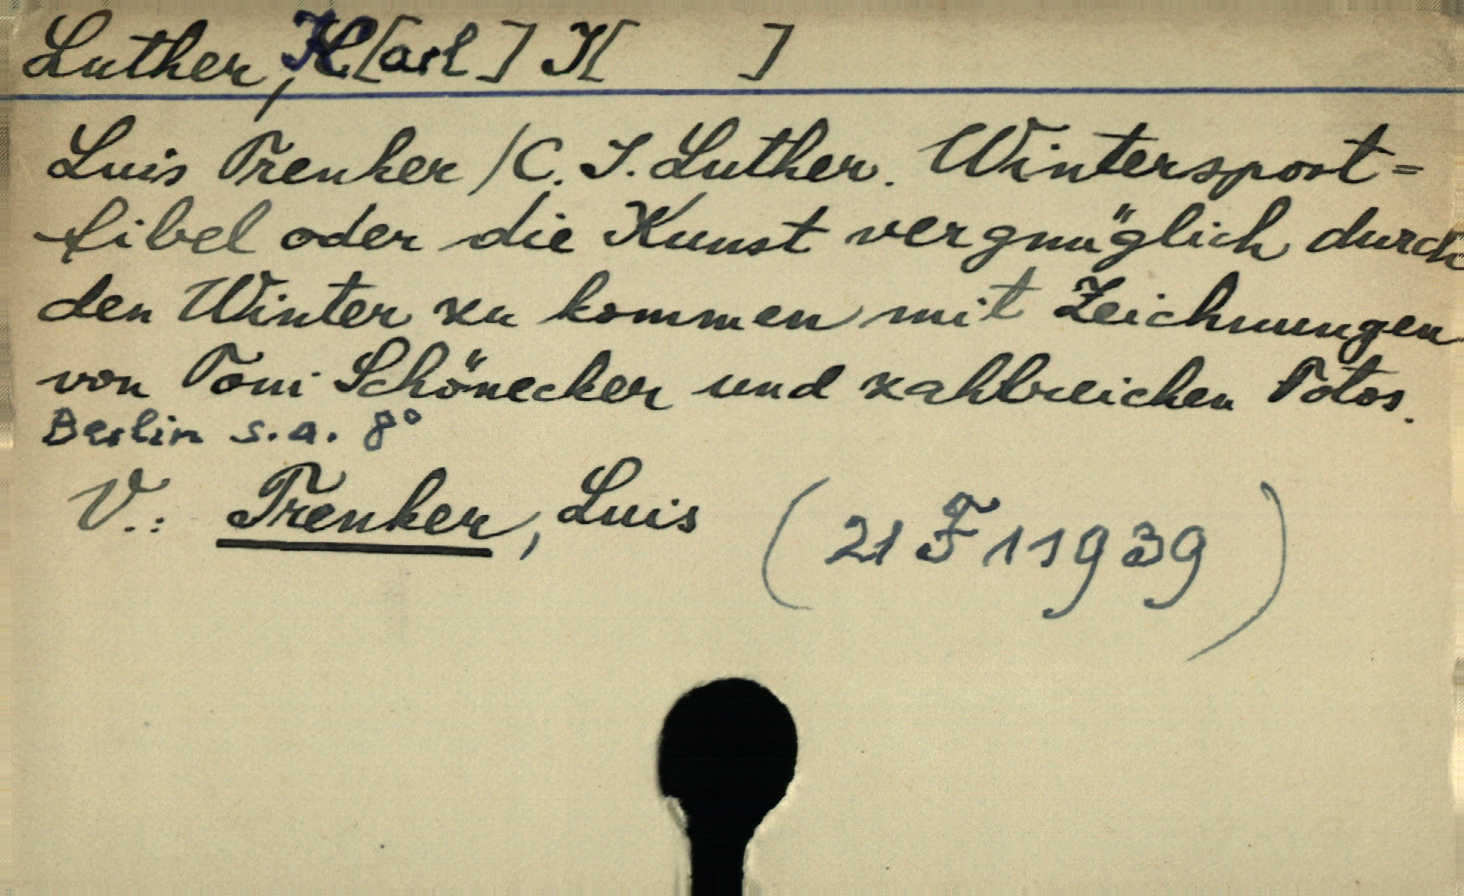 Luther, K[arl] J[ ]
Luis Trenker/C. J. Luther. Wintersport=
fibel oder die Kunst vergnüglich durch
den Winter zu kommen mit Zeichnungen
von Toni Schönecker und zahlreichen Fotos.
Berlin s.a. 8°
V.: Trenker, Luis (21 F 11939)